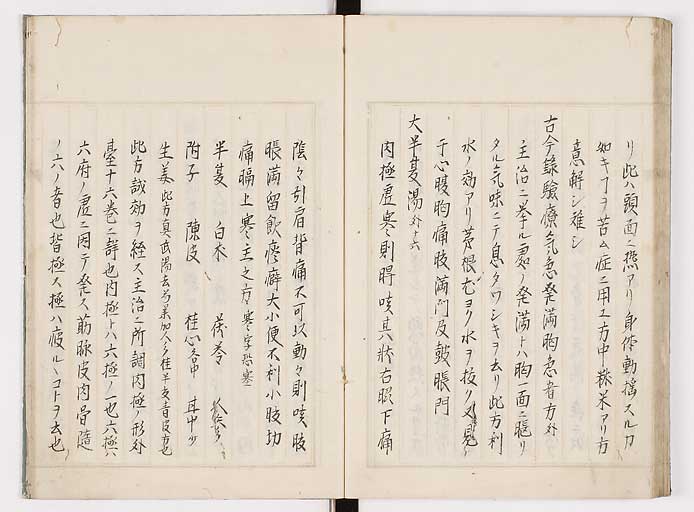 リ此ハ頭面ニ熱アリ身体動揺スル
如キヿヲ苦ム症ニ用エ方中秫米アリ方
意解シ難シ
古今錄驗療氣急発満胸急者方外
主治ニ挙ル処ノ発満トハ胸一面ニ
タル気味ニテ息タワシキヲ去リ此方利
水ノ効アリ根尤ヨク水ヲ
于心腹胸痛腹満門及鼓脹門
大半夏湯外十六
肉極虚寒則脾咳其状右脇下痛
陰々引肩背痛不可以動々則咳腹
脹満留飲痰癖大小便不利小腹切
痛膈上寒主之方寒字恐塞
半夏 白朮 茯苓
附子 陳皮 桂心各中
生姜此方真武湯去芍薬加人参桂半夏
此方試効ヲ経ス主治ニ所謂肉極ノ形外
臺十六巻ニ詳也肉極トハ六極ノ一也六極ハ
六府ノ虚ニ因テ発ス筋脉皮肉骨髓
ノ六ノ者也皆極ス極ハ疲ルヽコトヲ云也